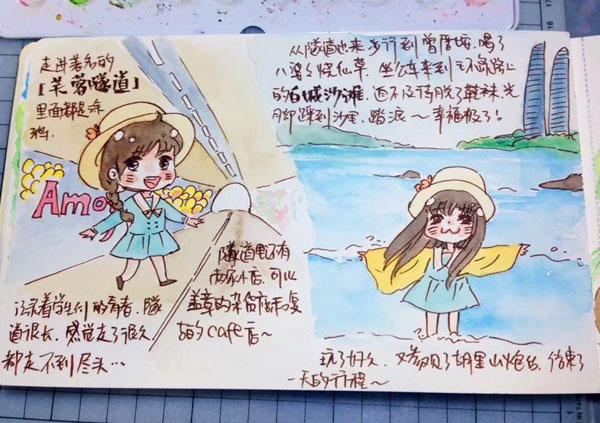 走进著名的
【芙蓉隧道】
里面都是涂
鸦.
Amo
隧道里还有
两家小店.可以
盖章的杂货店和
的cafe店~
记录着学生们的青春.隧
道很长.感觉走了很久
都走不到尽头…
从隧道出来步行到曾厝垵.喝了
八婆婆烧仙草.坐公车来到环岛路上
的白城沙滩.迫不及待脱了鞋袜光
脚踩到沙里.踏浪~幸福极了!
玩了好久.又参观了胡里山炮台.结束了
一天的行程~